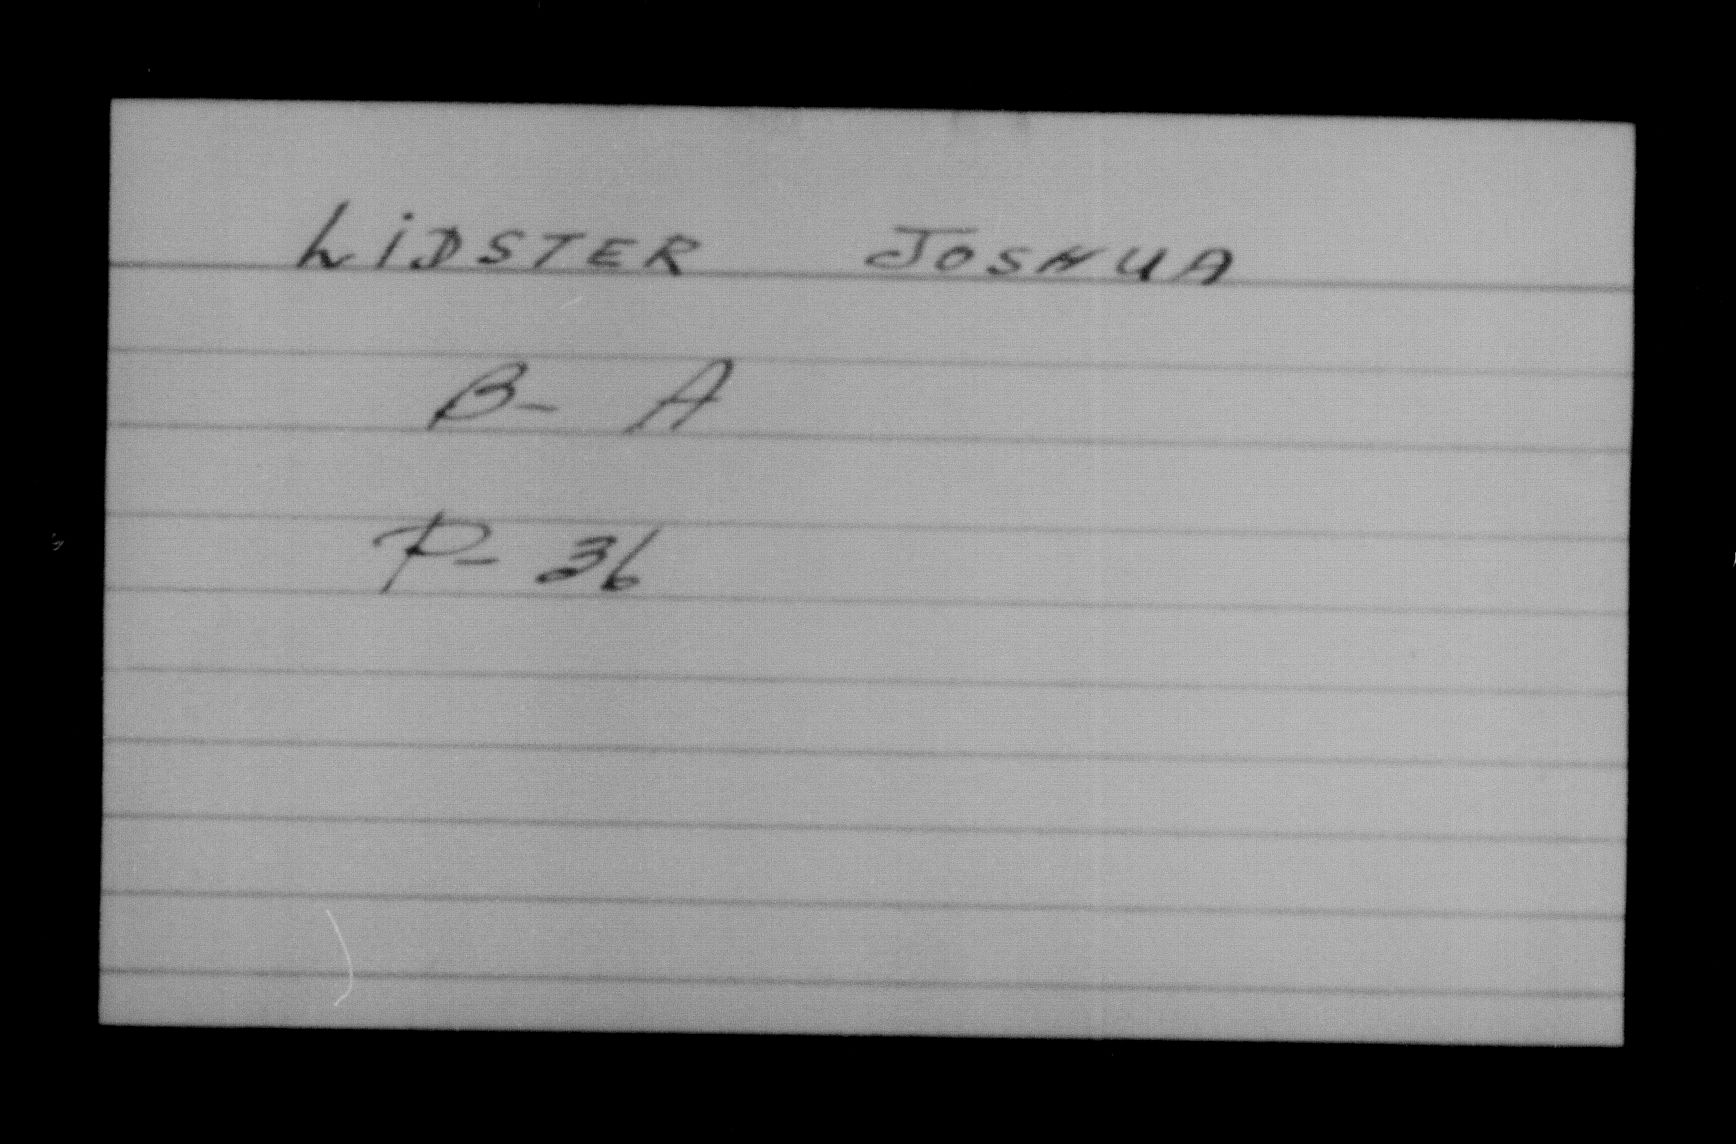 LiDSTER JOSHUA
B- A
P- 36